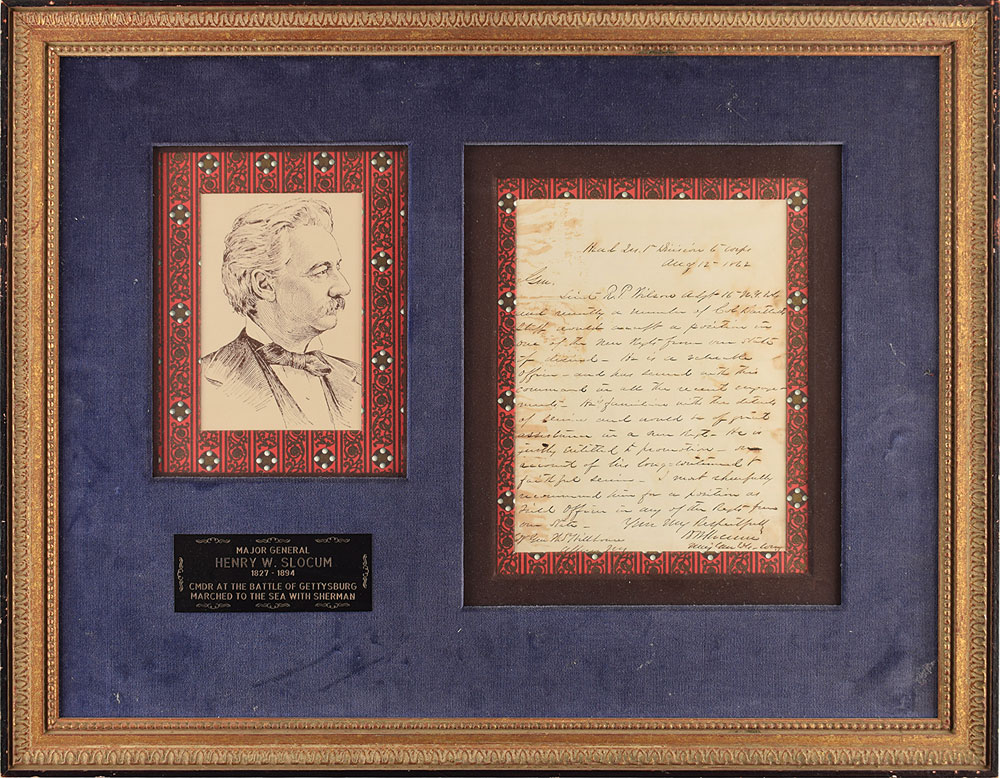 MAJOR GENERAL
HENRY W. SLOCUM
1827 - 1894
CMDR AT THE BATTLE OF GETTYSBURG
MARCHED TO THE SEA WITH SHERMAN
Head Qrs. 1st Division 6 Corps
Aug 12 - 1862
Gen.
Lieut R. P. Wilson Adjt 16 N.Y. Vol
and recently a member of Col Bartletts
Staff would accept a position in
one of the new Regts from our State
if desired - He is a reliable
Officer and has served with this
command in all the recent engage-
ments - He is familiar with the details
of service and would be of great
assistance in a new Regt - He is
justly entitled to promotion - on
account of his long-continued &
faithful service - I most cheerfully
recommend him for a position as
Field Officer in any of the Regts from
our State - Your Very Respectfully
H W Slocum
Maj Gen